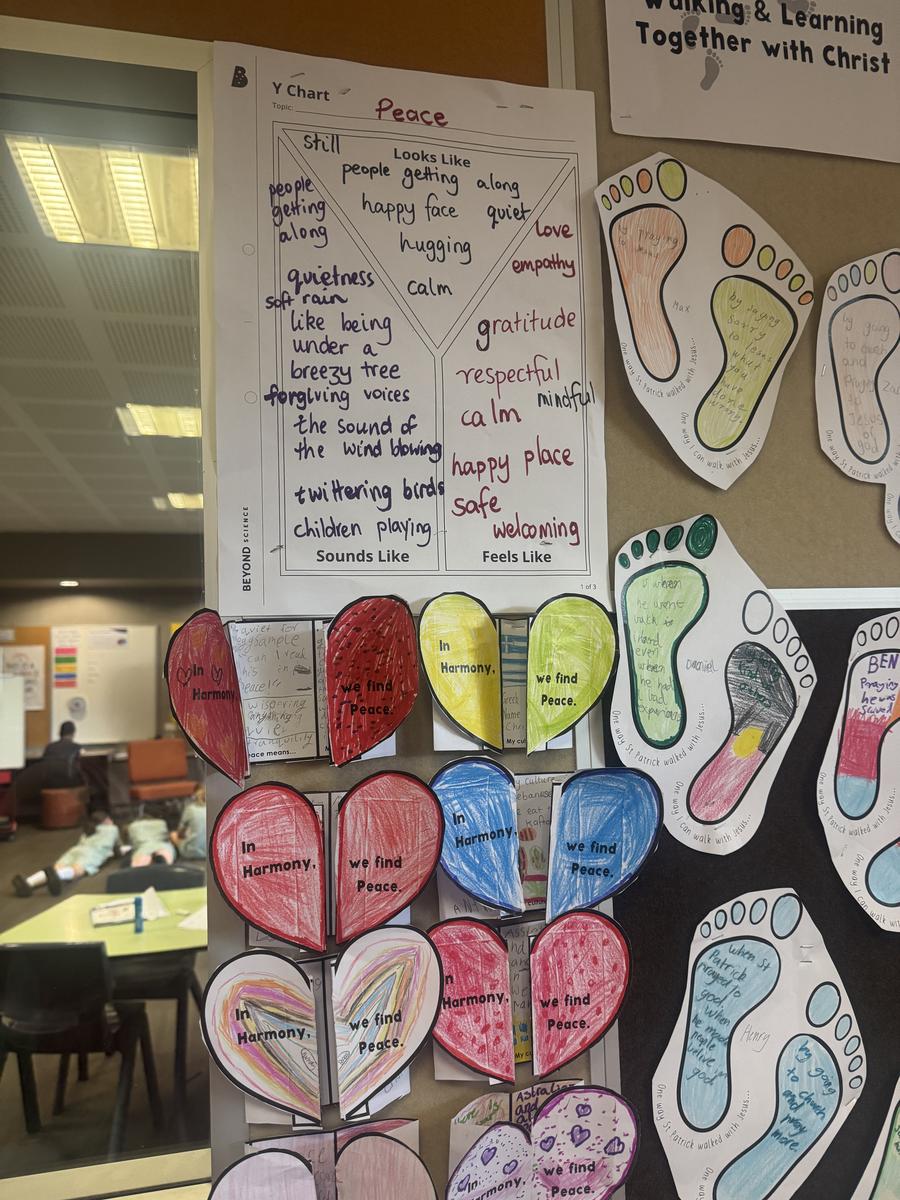 Walking & Learning
Together with Christ
B
Y Chart
Topic:
Peace
Looks Like
still
people getting along
happy face
quiet
hugging
calm
people
getting
along
quietness
soft rain
like being
under a
breezy tree
forgiving voices
the sound of
the wind blowing
twittering birds
children playing
Sounds Like
love
empathy
gratitude
respectful
mindful
calm
happy place
safe
welcoming
Feels Like
BEYOND SCIENCE
1 of 3
by praying
Max
One way St. Patrick walked with Jesus...
by saying
sorry
to
what
you
have
done
wrong.
One way I can walk with Jesus...
by going
to
and
to
Jesus
or
god
One way St. Patrick walked with
In
Harmony,
quiet for
can I read
tranquility
we find
Peace.
In
Harmony,
we find
Peace.
My cu
when
he went
back to
even
when
he had
bad
Daniel
One way St. Patrick walked with Jesus...
One way I can walk with Jesus...
BEN
Praying
he was
saved
One way St. Patrick walked
In
Harmony,
we find
Peace.
In
Harmony,
we find
Peace.
In
Harmony,
we find
Peace.
In
Harmony,
we find
Peace.
My cu
when St
Patrick
prayed to
god. When
he made
people
belive in
god.
Henry
One way St. Patrick walked with Jesus...
by going
to church
and pray
more.
One way
Australian
and
In
Harmony,
we find
Peace.